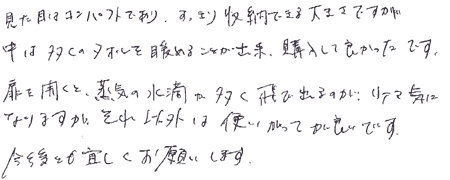 見た目はコンパクトであり、すっきり収納できる大きさですが
中は多くのタオルを暖めることが出来、購入して良かったです。
扉を開くと、蒸気の水滴が多く飛び出るのが、少々気に
なりますが、それ以外は使いがってが良いです。
今後とも宜しくお願いします。